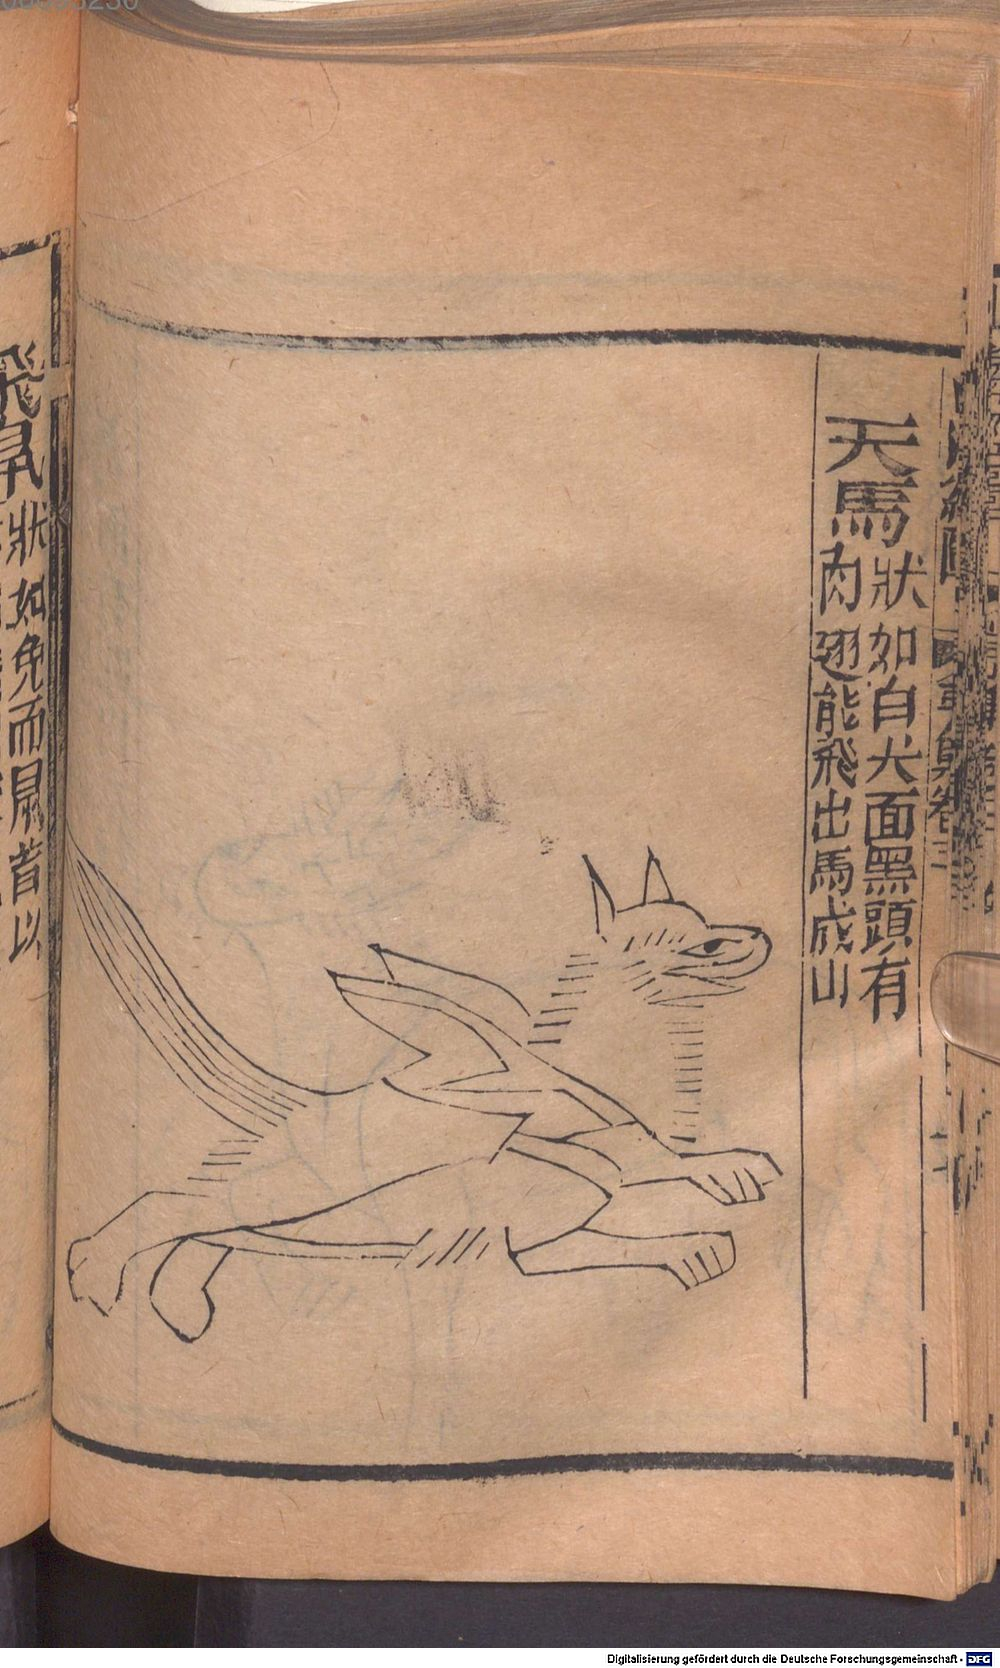 天馬
狀如白犬面黑頭有
肉翅能飛出馬成山
飛鼠
狀如兔而鼠首以
Digitalisierung gefördert durch die Deutsche Forschungsgemeinschaft - DFG